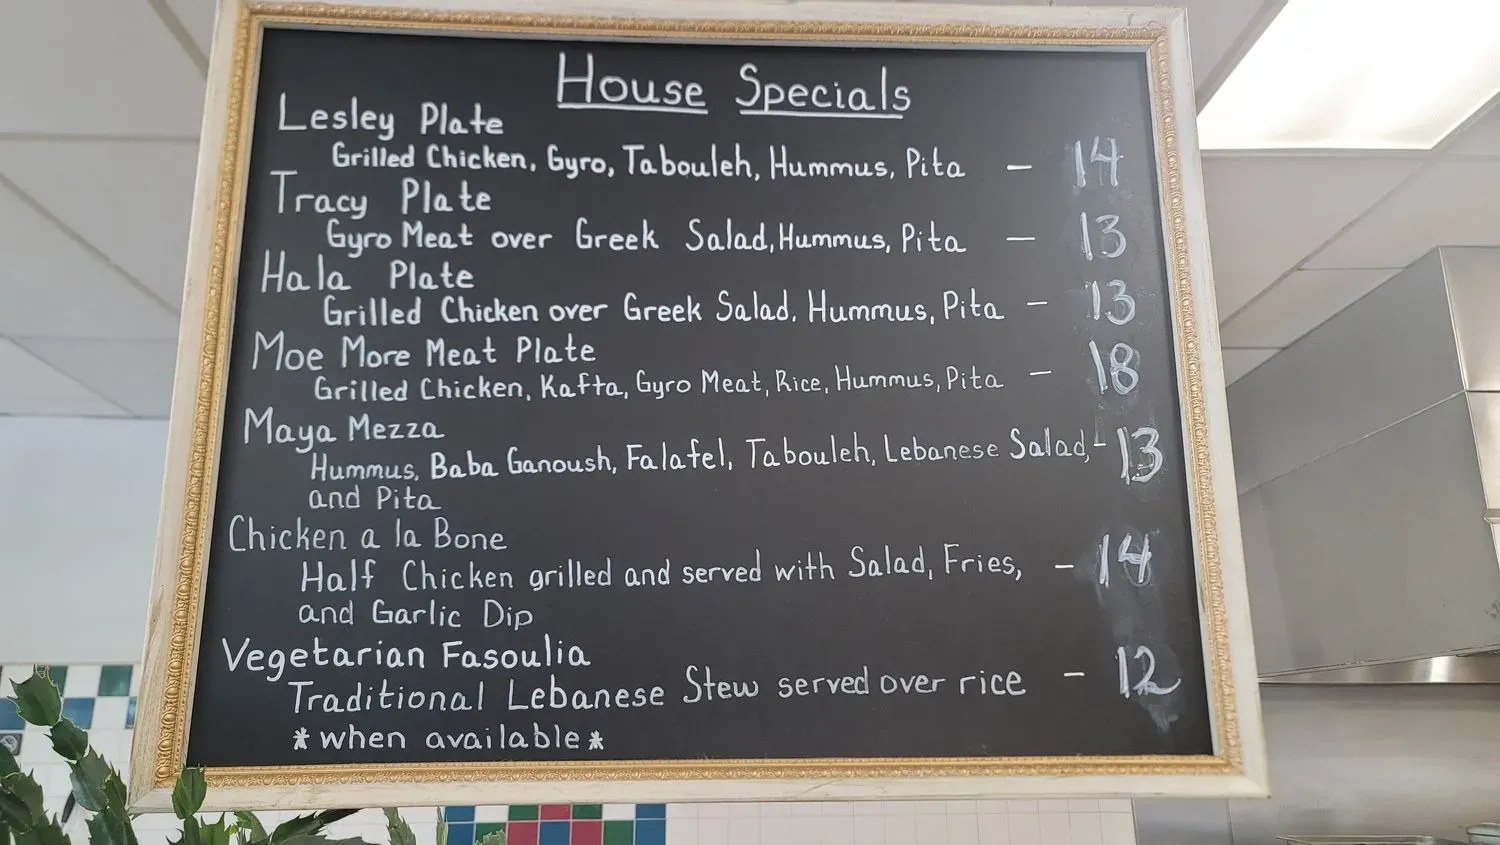 House Specials
Lesley Plate
Grilled Chicken, Gyro, Tabouleh, Hummus, Pita - 14
Tracy Plate
Gyro Meat over Greek Salad, Hummus, Pita - 13
Hala Plate
Grilled Chicken over Greek Salad. Hummus, Pita - 13
Moe More Meat Plate
Grilled Chicken, Kafta, Gyro Meat, Rice, Hummus, Pita - 18
Maya Mezza
Hummus, Baba Ganoush, Falafel, Tabouleh, Lebanese Salad, - 13
and Pita
Chicken a la Bone
Half Chicken grilled and served with Salad, Fries, - 14
and Garlic Dip
Vegetarian Fasoulia
Traditional Lebanese Stew served over rice - 12
*when available*